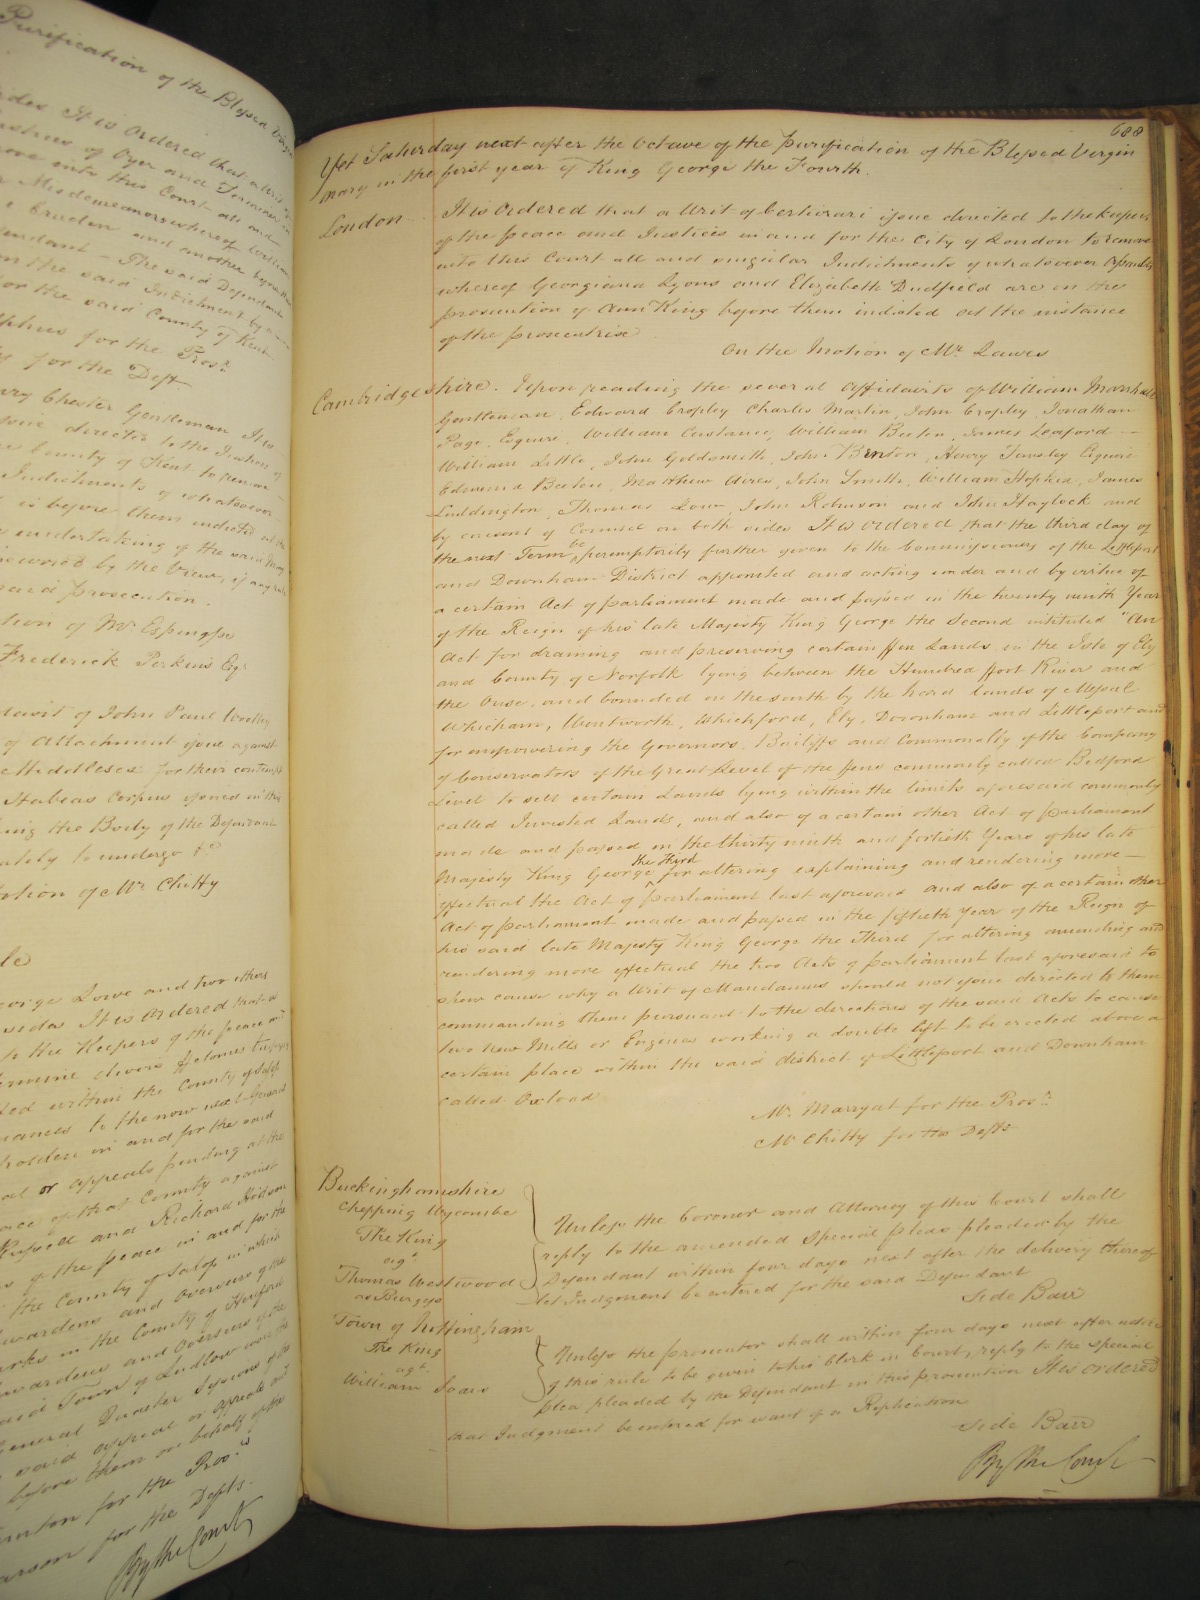 Purification of the Blessed Virgin
It is Ordered that a Writ
Justices of Oyer and Terminer
into this Court all and
Misdemeanors whereof William
and another before
The said Defendant
the said Indictment by
or the said County of Kent
for the Prosr.
for the Deft
Chester Gentleman It is
issue directed to the Justices of
County of Kent to remove
Indictments of whatsoever
is before them indicted at the
undertaking of the said
incurred by the Crown, if any
said prosecution.
tion of Mr. Espinasse
Frederick Perkins Esqr.
davit of John Paul Woolley
of Attachment issue against
Middlesex for their contempt
Habeas Corpus issued in this
ing the Body of the Defendant
ately to undergo &c
otion of Mr. Chitty
George Lowe and two others
sides It is Ordered that a
to the Keepers of the peace and
divers Felonies Trespasses
ted within the County of Salop
to the now next General
holden in and for the said
al or appeals pending at the
ace of that County against
Russell and Richard Hodson
of the peace in and for the
the County of Salop in which
wardens and Overseers of the
in the County of Hereford
wardens and Overseers of the
said Town of Ludlow
General Quarter Sessions of the
said appeal or appeals and
before them on behalf of the
for the Prosr.
for the Defts.
By the Court
688
Yet Saturday next after the Octave of the Purification of the Blessed Virgin
Mary in the first year of King George the Fourth.
London It is Ordered that a Writ of Certiorari issue directed to the Keepers
of the peace and Justices in and for the City of London to remove
into this Court all and singular Indictments of whatsoever Assaults
whereof Georgiana Lyons and Elizabeth Dudfield are on the
prosecution of Ann King before them indicted at the instance
of the prosecutrix
On the Motion of Mr. Lawes
Cambridgeshire. Upon reading the several Affidavits of William Marshall
Gentleman, Edward Cropley Charles Martin, John Cropley, Jonathan
Page, Esquire, William Custance, William Beeton, James Leaford
William Little, John Goldsmith, John Benton, Henry Tansley Esquire
Edmund Beeton, Matthew Aves, John Smith, William Hopkin, James
Luddington, Thomas Low, John Robinson and John Haylock and
by consent of Counsel on both sides It is ordered that the third day of
the next Term be peremptorily further given to the Commissioners of the Littleport
and Downham District appointed and acting under and by virtue of
a certain Act of parliament made and passed in the twenty ninth Year
of the Reign of his late Majesty King George the Second intituled "An
Act for draining and preserving certain ffen Lands in the Isle of Ely
and County of Norfolk lying between the Hundred ffoot River and
the Ouse, and bounded on the south by the hard lands of Mepal
Whicham, Wentworth, Whichford, Ely, Downham and Littleport and
for empowering the Governors, Bailiffs and Commonalty of the Company
of Conservators of the Great Level of the ffens commonly called Bedford
Level to sell certain Lands lying within the limits aforesaid commonly
called Invested Lands, and also of a certain other Act of parliament
made and passed in the thirty ninth and fortieth Years of his late
Majesty King George the Third for altering explaining and rendering more
effectual the Act of parliament last aforesaid and also of a certain other
Act of parliament made and passed in the fiftieth Year of the Reign of
his said late Majesty King George the Third for altering amending and
rendering more effectual the two Acts of parliament last aforesaid to
shew cause why a Writ of Mandamus should not issue directed to them
commanding them pursuant to the directions of the said Acts to cause
two new Mills or Engines working a double lift to be erected above a
certain place within the said district of Littleport and Downham
called Oxload
Mr. Marryat for the Prosr.
Mr. Chitty for the Defts
Buckinghamshire
Chepping Wycombe
The King
agt.
Thomas Westwood
as Burgess
Unless the Coroner and Attorney of this Court shall
reply to the amended Special pleas pleaded by the
Defendant within four days next after the delivery thereof
let Judgment be entered for the said Defendant
Side Barr
Town of Nottingham
The King
agt.
William Soars
Unless the prosecutor shall within four days next after notice
of this rule to be given to his Clerk in Court, reply to the special
plea pleaded by the Defendant in this prosecution It is ordered
that Judgment be entered for want of a Replication
Side Barr
By the Court